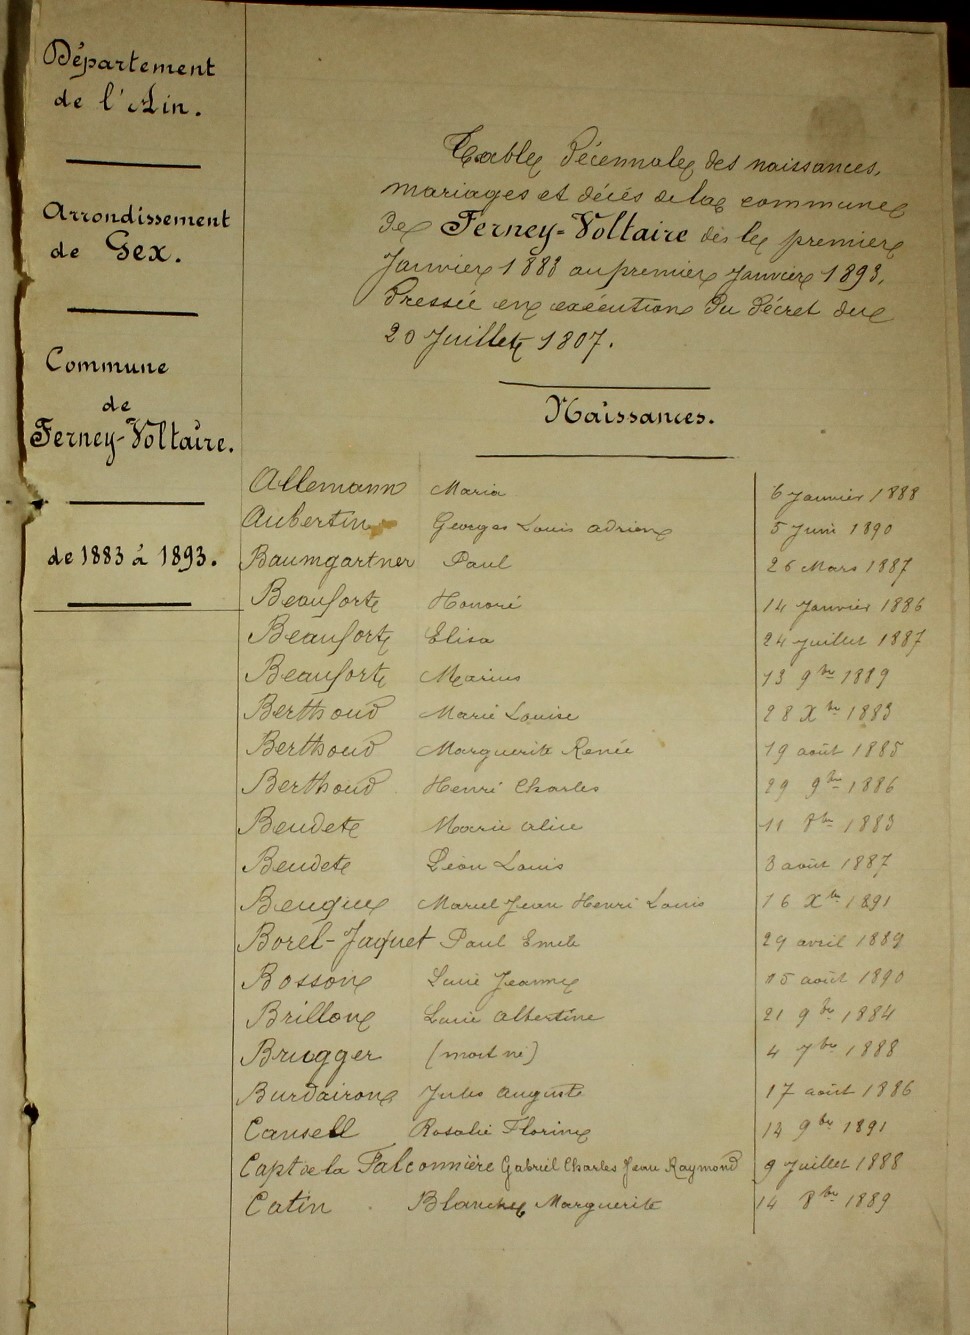 Département
de l'Ain.
Arrondissement
de Gex.
Commune
de
Ferney-Voltaire.
de 1883 à 1893.
Table Décennale des naissances,
mariages et décès de la commune
de Ferney-Voltaire dès le premier
Janvier 1883 au premier Janvier 1893,
Dressée en exécution du Décret du
20 Juillet 1807.
Naissances.
Allemann Maria 6 Janvier 1888
Aubertin Georges Louis Adrien 5 Juin 1890
Baumgartner Paul 26 Mars 1887
Beaufort Honoré 14 Janvier 1886
Beaufort Elisa 24 Juillet 1887
Beaufort Marius 13 9bre 1889
Berthoud Marie Louise 28 Xbre 1883
Berthoud Marguerite Renée 19 août 1885
Berthoud Henri Charles 29 9bre 1886
Beudet Marie Alice 11 8bre 1883
Beudet Léon Louis 3 août 1887
Beugue Marcel Jean Henri Louis 16 Xbre 1891
Borel-Jaquet Paul Emile 29 avril 1889
Bosson Jeanne 15 août 1890
Brillon Albertine 21 9bre 1884
Brugger (mort né) 4 7bre 1888
Burdairon Jules Auguste 17 août 1886
Cansell Rosalie Florine 14 9bre 1891
Capt de la Falconnière Gabriel Charles Jean Raymond 9 Juillet 1888
Catin Blanche Marguerite 14 8bre 1889